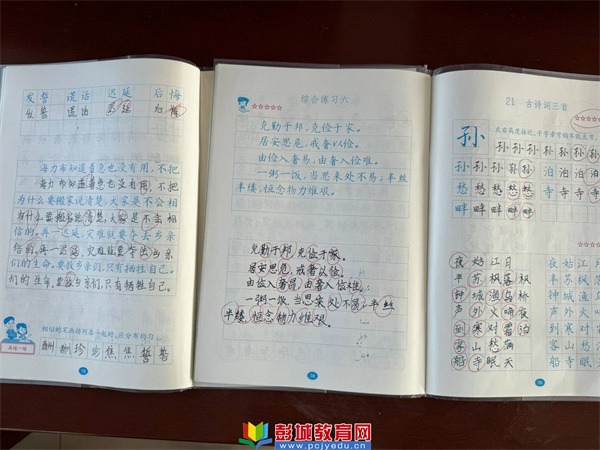 发誓 谎话 迟延 后悔
发誓 谎话 迟延 后悔
海力布知道着急也没有用,不把
海力布知道着急也没有用,不把
为什么要搬家说清楚,大家是不会相
为什么要搬家说清楚,大家是不会相
信的。再一迟延,灾难就要夺去乡亲
信的。再一迟延,灾难就要夺去乡亲
们的生命。要救乡亲们,只有牺牲自己。
们的生命。要救乡亲们,只有牺牲自己。
相似的笔画排列在一起时,应分布均匀。
酬 酬 珍 珍 焦 焦 誓 誓
综合练习六
克勤于邦,克俭于家。
居安思危,戒奢以俭。
由俭入奢易,由奢入俭难。
一粥一饭,当思来处不易;半丝
半缕,恒念物力维艰。
克勤于邦 克俭于家。
居安思危,戒奢以俭。
由俭入奢易,由奢入俭难。
一粥一饭,当思来处不易;半丝
半缕,恒念物力维艰。
21 古诗词三首
孙
孙 孙 孙 孙 孙 孙
孙 孙 孙 孙 泊 泊 泊
愁 愁 愁 愁 寺 寺 寺
畔 畔 畔 畔
夜 姑 江 月
夜 姑 江 月
平 苏 枫 落
平 苏 枫 落 枫
钟 城 渔 乌 桥
钟 城 渔 乌
声 外 火 啼 夜
声 外 火 啼
到 寒 对 霜 泊
到 寒 对 霜
客 山 愁 满
客 山 愁 满
船 寺 眠 天
船 寺 眠 天
彭城教育网
www.pcjyedu.cn